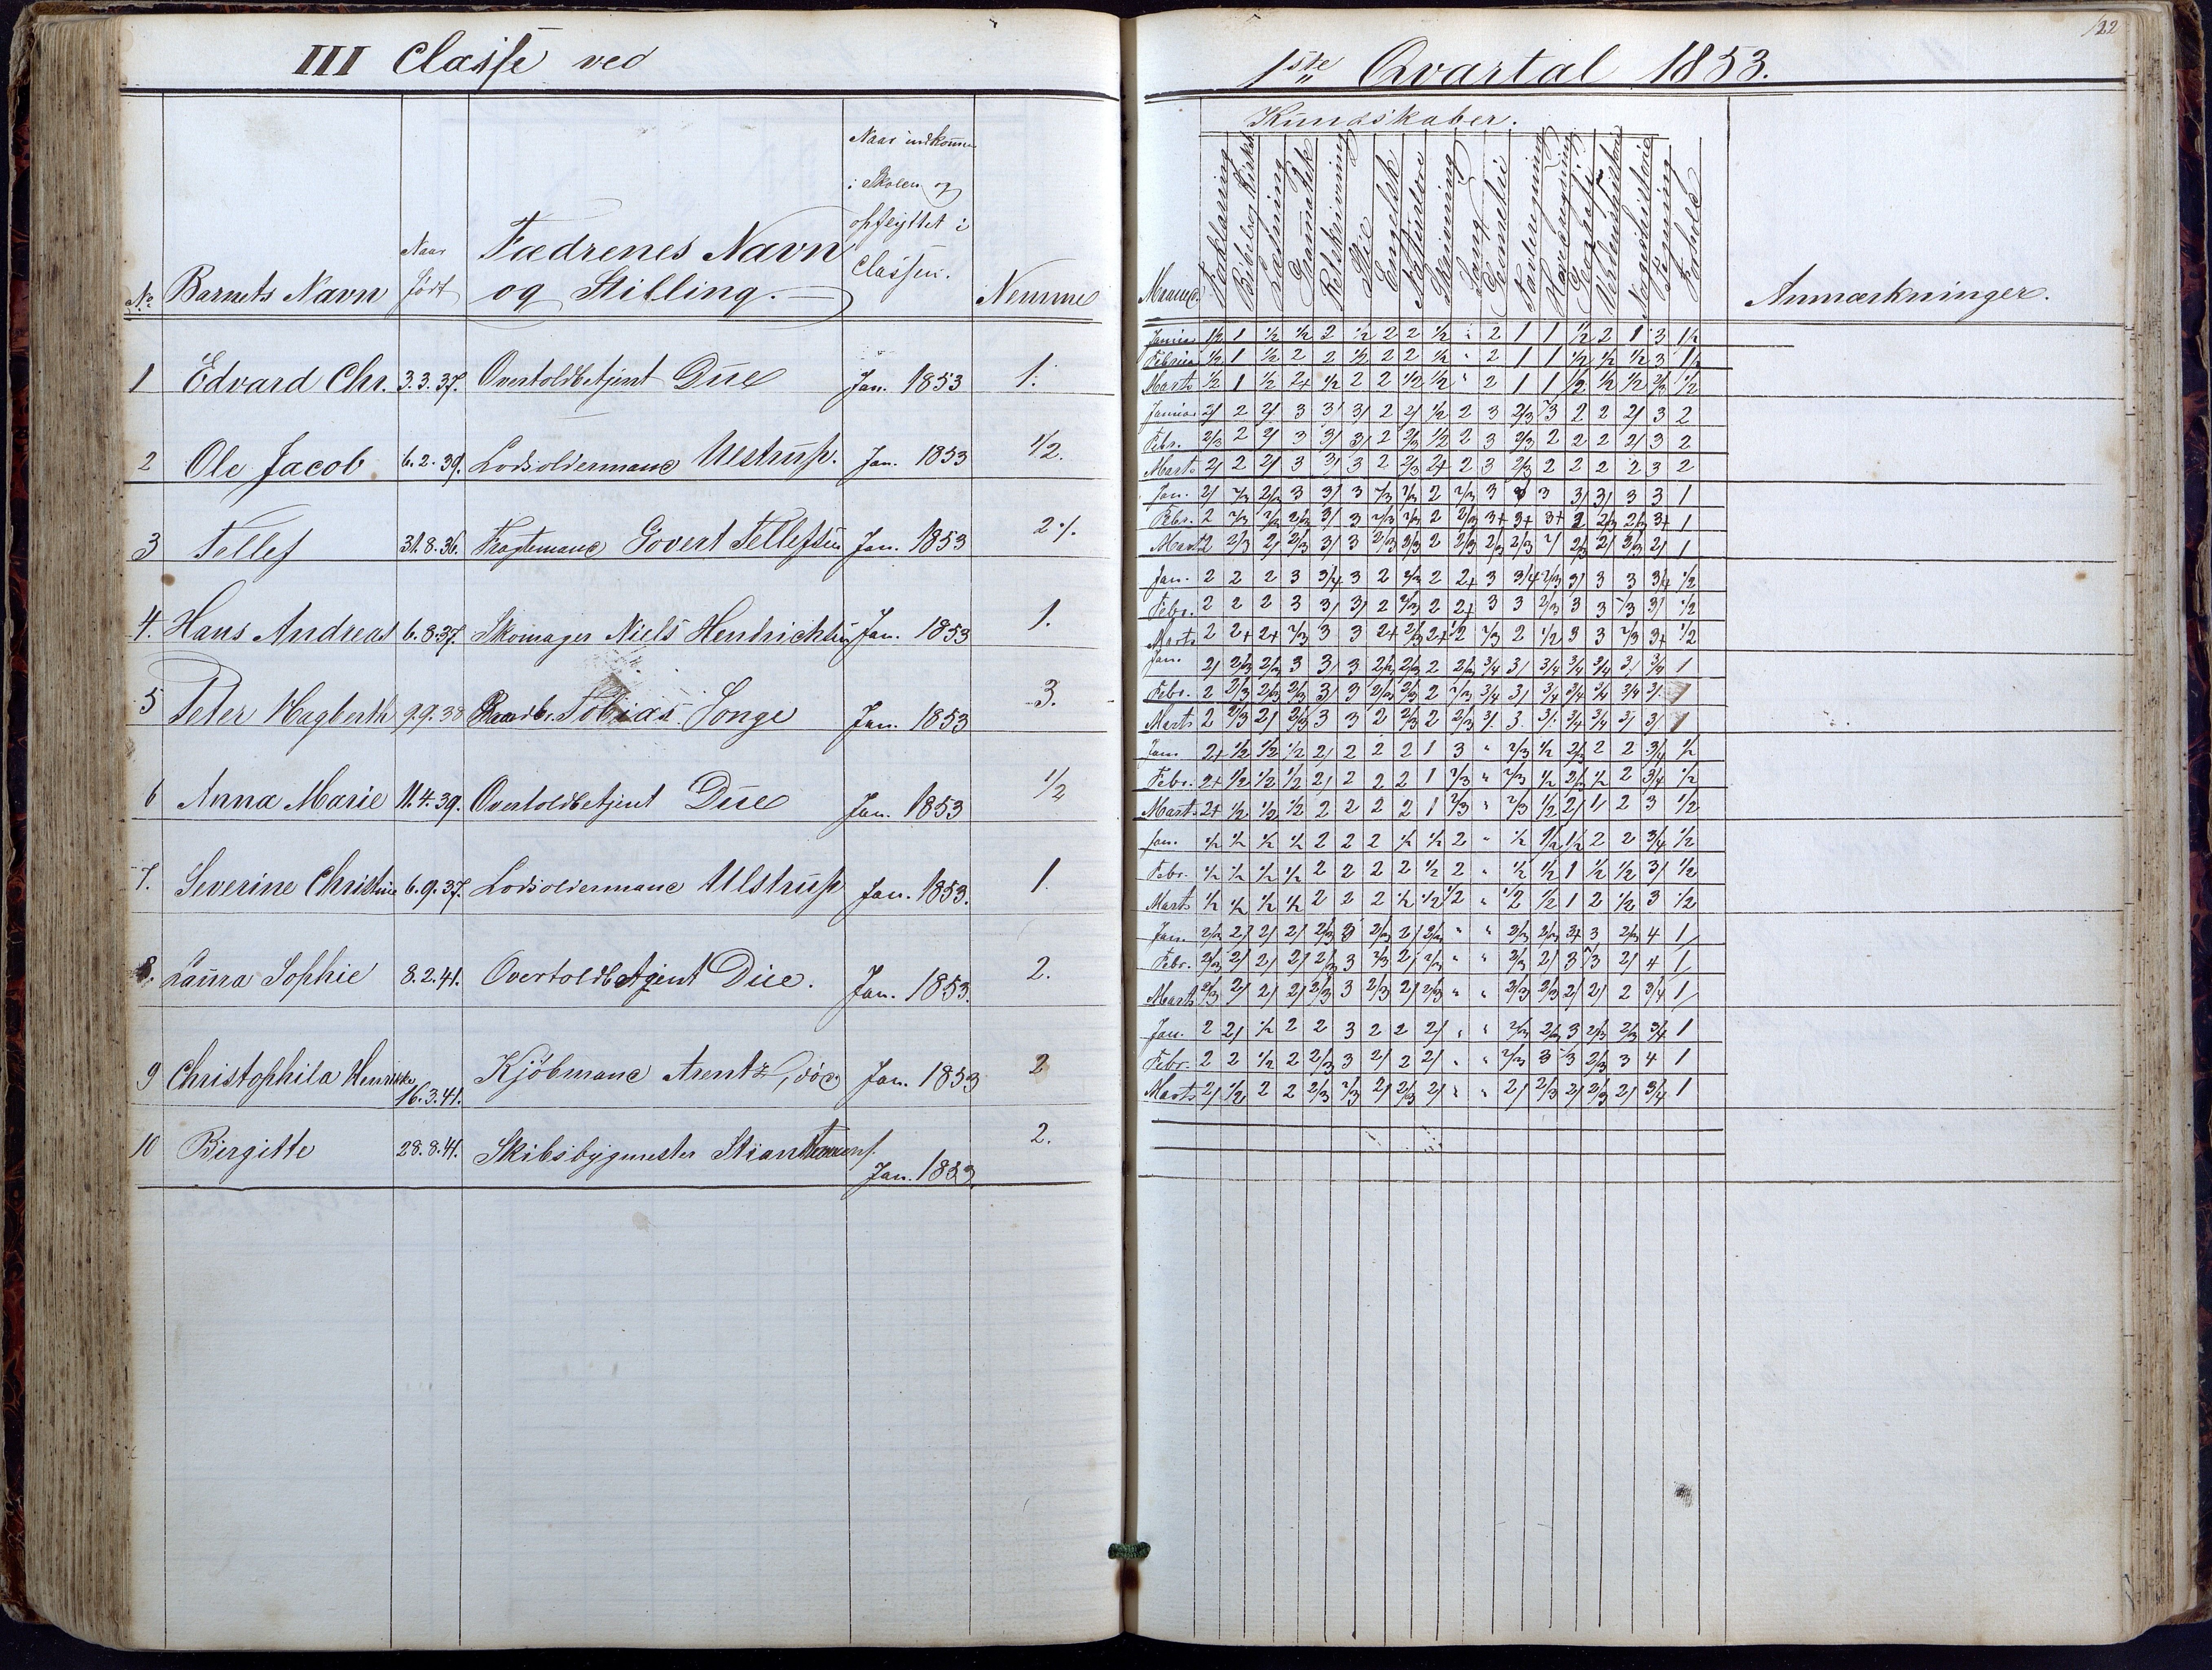 III Classe ved
No Barnets Navn Naar født Fædrenes Navn og Stilling. Naar indkommen i Skolen og opflyttet i Classen. Nemme
1 Edvard Chr. 3.3.37. Overtoldbetjent Due Jan. 1853 1.
2 Ole Jacob 6.2.39. Lodsoldermand Ulstrup. Jan. 1853 1/2.
3 Tellef 31.8.36. Fragtemand Govert Tellefsen Jan. 1853 2/.
4. Hans Andreas 6.8.37. Skomager Niels Hendrichsen Jan. 1853 1.
5 Peter Hagberth 9.9.38 Tobias Songe Jan. 1853 3.
6 Anna Marie 11.4.39. Overtoldbetjent Due Jan. 1853 1/2
7. Severine Christine 6.9.37. Lodsoldermand Ulstrup Jan. 1853. 1.
8. Laura Sophie 8.2.41. Overtoldbetjent Due. Jan. 1853. 2.
9 Christophila Henrikke 16.3.41. Kjöbmand Arentz, död Jan. 1853 2
10 Birgitte 28.8.41. Skibsbygmester Stian Jan. 1853. 2.
122
1ste Qvartal 1853.
Kundskaber.
Maaned. Forklaring Læsning Grammatik Retskrivning Stil Engelsk Naturlære Skrivning Sang Geometri Tavleregning Hovedregning Geographi Verdenshistorie Tegning Forhold Anmærkninger.
Januar 1/2 1 1/2 1/2 2 1/2 2 2 1/2 " 2 1 1 1/2 2 1 3 1/2
Februar 1/2 1 1/2 2 2 1/2 2 2 1/2 " 2 1 1 1/2 1/2 1/2 3 1/2
Marts 1/2 1 1/2 2+ 1/2 2 2 1/2 1/2 " 2 1 1 1/2 1/2 1/2 2/3 1/2
Januar 2/ 2 2/ 3 3/ 3/ 2 2/ 1/2 2 3 2/3 /3 2 2 2/ 3 2
Febr. 2/3 2 2/ 3 3/ 3/ 2 2/3 1/2 2 3 2/3 2 2 2 2/ 3 2
Marts 2/ 2 2/ 3 3/ 3 2 2/3 2+ 2 3 2/3 2 2 2 2 3 2
Jan. 2/ 2/3 2/3 3 3/ 3 2/3 2/3 2 2/3 3 3 3/ 3/ 3 3 1
Febr. 2 2/3 2/3 2/3 3/ 3 2/3 2/3 2 2/3 3+ 3+ 3+ 2 2/3 2/3 3+ 1
Marts 2 2/3 2/ 2/3 3/ 3 2/3 2/3 2 2/3 2/3 2/3 2/ 2/3 2/ 2/3 2/ 1
Jan. 2 2 2 3 3/4 3 2 2/3 2 2+ 3 3/4 2/3 3/ 3 3 3/4 1/2
Febr. 2 2 2 3 3/ 3/ 2 2/3 2 2+ 3 3 2/3 3 3 /3 3/ 1/2
Marts 2 2+ 2+ 2/3 3 3 2+ 2/3 2+ 1/2 2/3 2 1/2 3 3 2/3 3+ 1/2
Jan. 2/ 2/3 2/3 3 3/ 3 2/3 2/3 2 2/3 3/4 3/ 3/4 3/4 3/4 3/ 3/4 1
Febr. 2 2/3 2/3 2/3 3/ 3 2/3 2/3 2 2/3 3/4 3/ 3/4 3/4 3/4 3/4 3/. 1
Marts 2 2/3 2/ 2/3 3 3 2 2/3 2 2/3 3/. 3. 3/. 3/4 3/4 3/ 3/ 1
Jan. 2+ 1/2 1/2 1/2 2/ 2 2 2 1 3 " 2/3 1/2 2/3 2 2 3/4 1/2
Febr. 2+ 1/2 1/2 1/2 2/ 2 2 2 1 2/3 " 2/3 1/2 2/3 1/2 2 3/4 1/2
Marts 2+ 1/2 1/2 1/2 2 2 2 2 1 2/3 " 2/3 1/2 2/ 1/ 2 3 1/2
Jan. 1/2 1/2 1/2 1/2 2 2 2 1/2 1/2 2 " 1/2 1/2 1/2 2 2 3/4 1/2
Febr. 1/2 1/2 1/2 1/2 2 2 2 2 1/2 2 " 1/2 1/2 1 1/2 1/2 3/ 1/2
Marts 1/2 1/2 1/2 1/2 2 2 2 1/2 1/2 1/2 " 1/2 1/2 1 2 1/2 3 1/2
Jan. 2/3 2/ 2/ 2/ 2/3 3 2/3 2/ 2/3 " " 2/3 2/3 3+ 3 2/3 4 1/
Febr. 2/3 2/ 2/ 2/ 2/3 3 2/3 2/ 2/3 " " 2/3 2/ 3 /3 2/ 4 1/
Marts 2/3 2/ 2/ 2/ 2/3 3 2/3 2/ 2/3 " " 2/3 2/3 2/ 2/ 2 3/4 1/
Jan. 2 2/ 1/2 2 2 3 2 2 2/ " " 2/3 2/3 3 2/3 2/3 3/4 1
Febr. 2 2 1/2 2 2/3 3 2/ 2 2/ " " 2/3 3 3 2/3 3 4 1
Marts 2/ 1/2 2 2 2/3 2/3 2/ 2/3 2/ " " 2/ 2/3 2/ 2/3 2/ 3/4 1